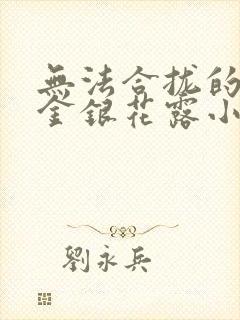 無法合拢的
金銀花露小
劉永兵